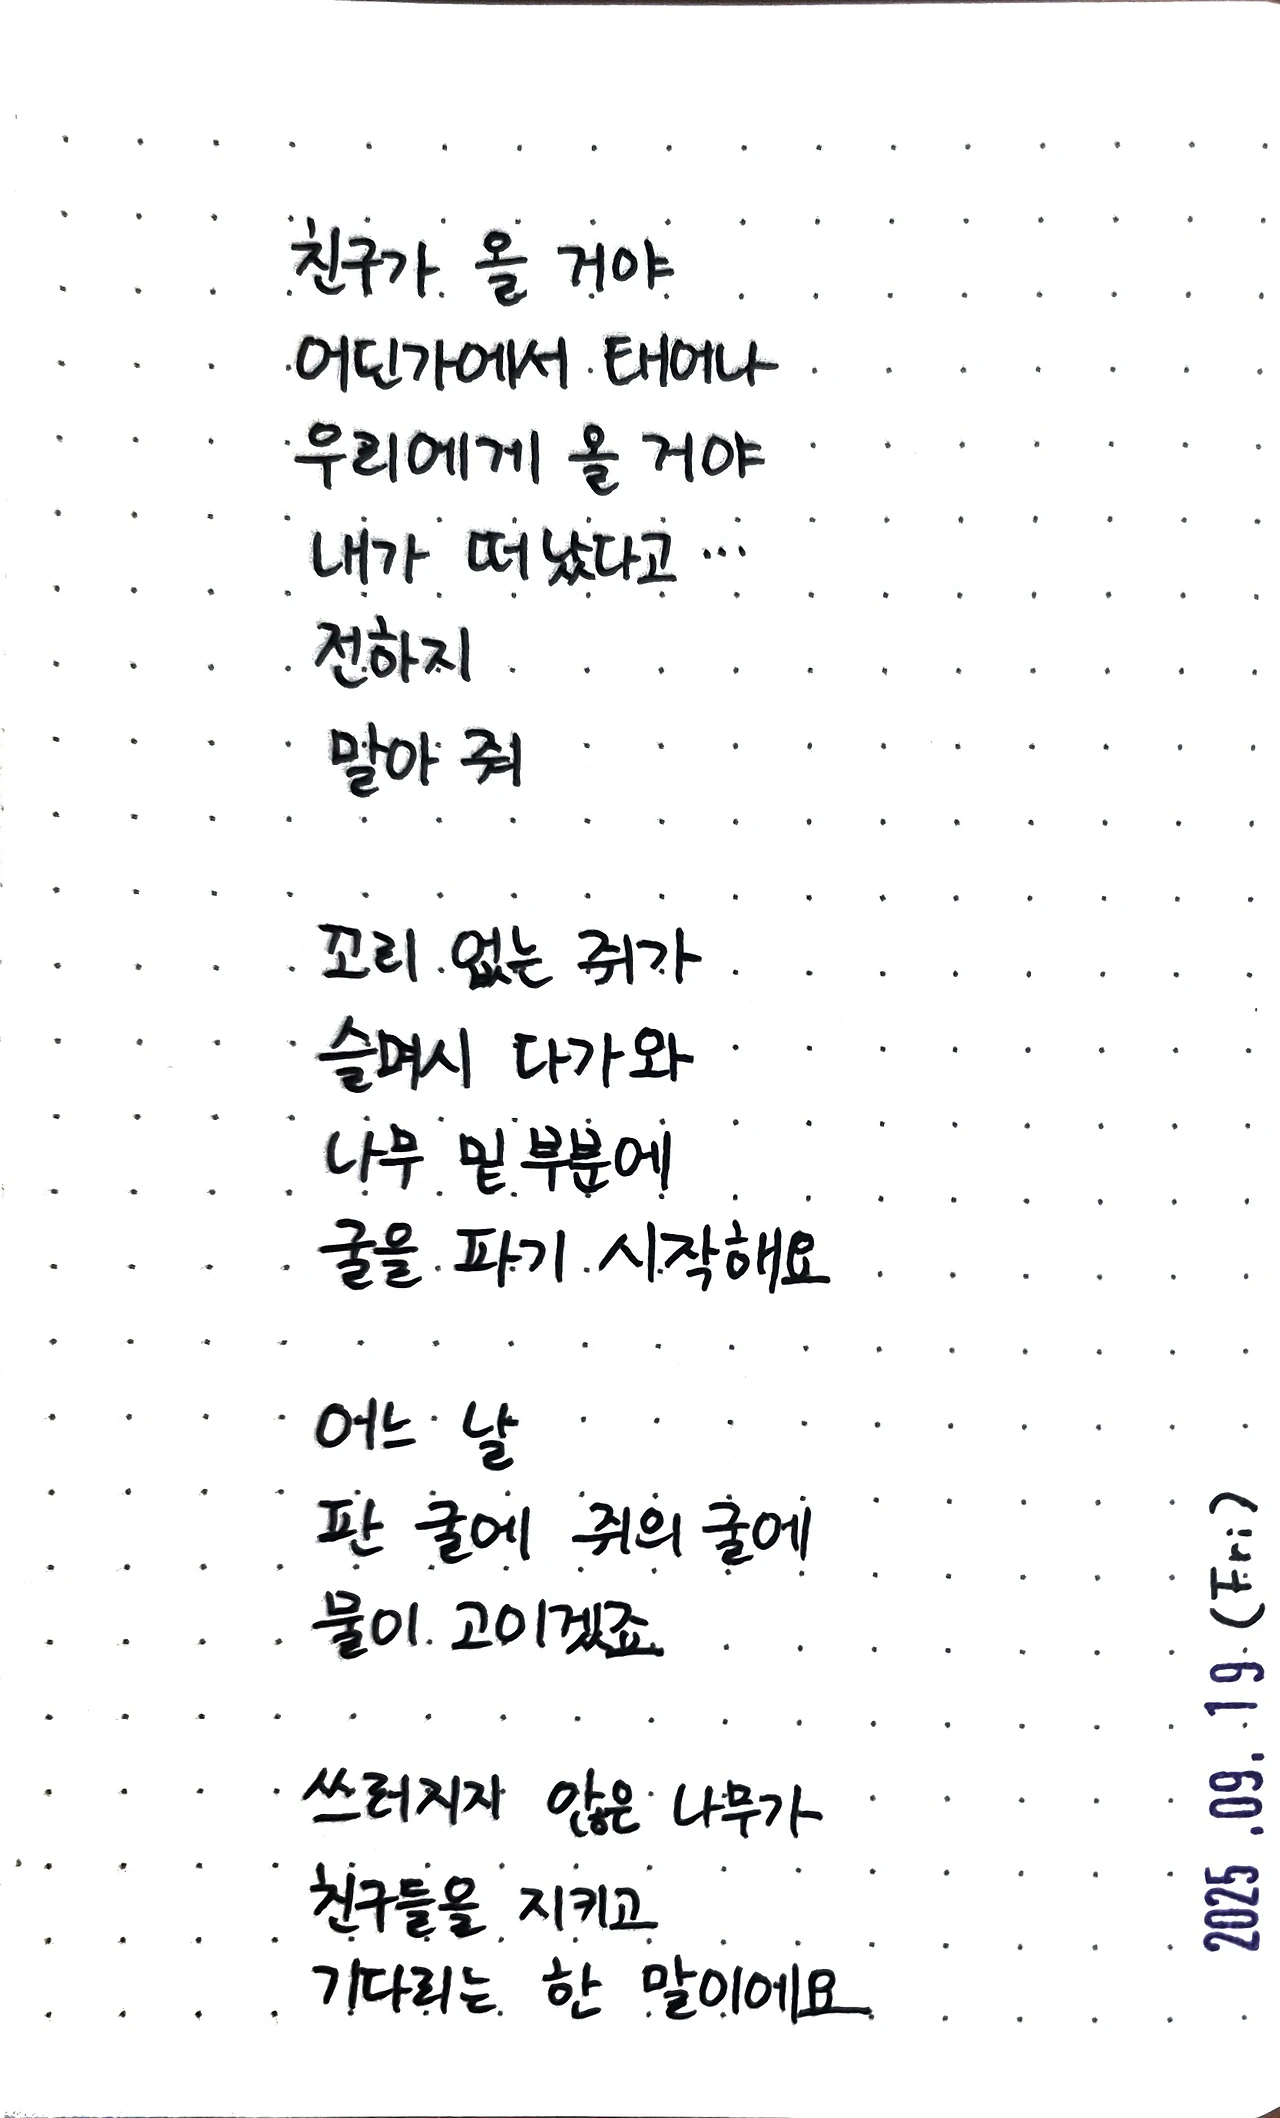 친구가 올 거야
어딘가에서 태어나
우리에게 올 거야
내가 떠났다고 ...
전하지
말아 줘
꼬리 없는 쥐가
슬며시 다가와
나무 밑부분에
굴을 파기 시작해요
어느 날
판 굴에 쥐의 굴에
물이 고이겠죠
쓰러지자 않은 나무가
친구들을 지키고
기다리는 한 말이에요
2025.09.19 (Fri)